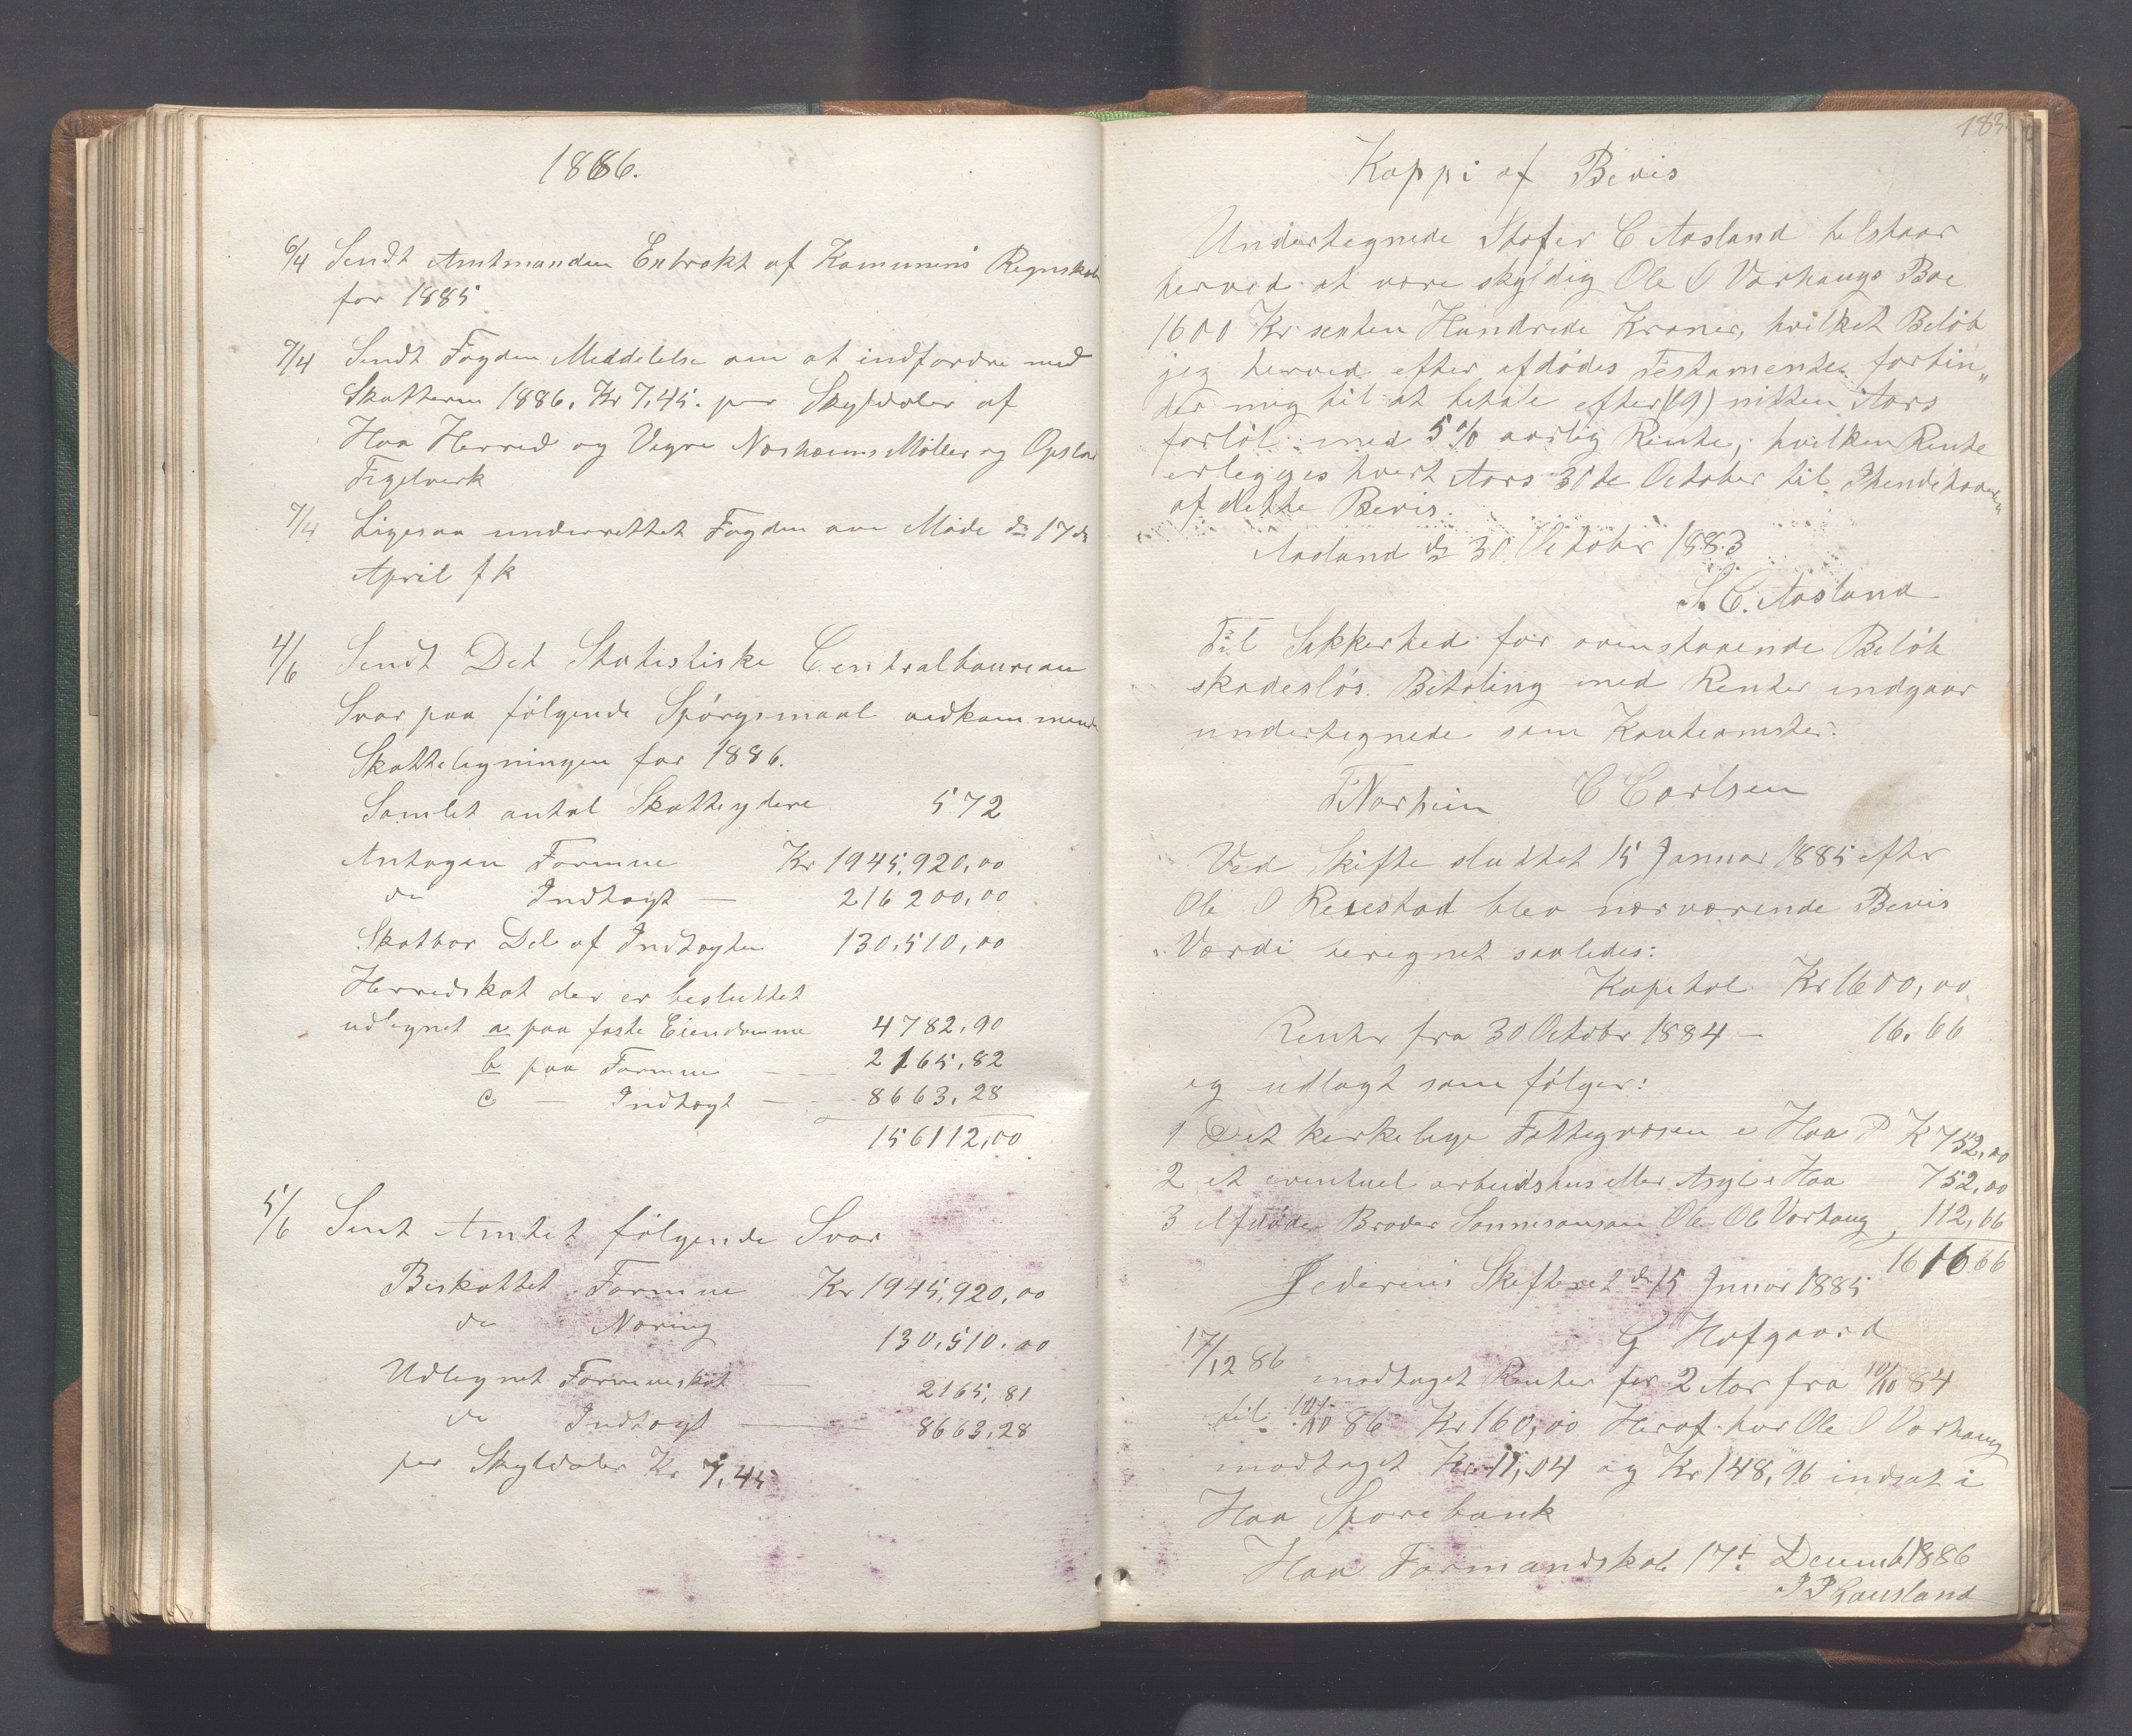 1886.
6/4 Sendt Amtmanden Extrakt af Komunens Regnskab
for 1885
7/4 Sendt Fogden Meddelelse om at indfordre med
Skatterne 1886, Kr 7,45. per Skyldaler af
Haa Herred og Vigre Nærheims Møller og Opstad
Tegelverk
7/4 Ligesaa underrettet Fogden om Møde d. 17de
April f k
4/6 Sendt Det Statistiske Centralbaureau
Svar paa følgende Spørgsmaal vedkommende
Skatteligningen for 1886.
Samlet antal Skatteydere 572
Antagen Formue Kr 1945,920,00
do Indtægt — 216200,00
Skatbar Del af Indtægten 130,510,00
Herredskat der er besluttet
udlignet a paa faste Eiendomme 4782,90
b paa Formue — 2165,82
c — Indtægt — 8663,28
156112,00
5/6 Sent Amtet følgende Svar
Beskattet Formue Kr 1945,920,00
do Næring 130,510,00
Udlignet Formueskat — 2165,81
do Indtægt — 8663,28
per Skyldaler Kr 7,45
183
Koppi af Bevis
Undertegnede Stofer C Aasland tilstaar
herved at være skyldig Ole O Varhaugs Boe
1600 Kr. sexten Hundrede Kroner, hvilket Beløb
jeg herved efter afdødes Testamente forbin„
der mig til at betale efter (19) nitten Aars
forløb med 5% aarlig Rente, hvilken Rente
erlegges hvert Aars 30te October til Ihendehaveren
af dette Bevis.
Aasland d. 30 Octobr 1883
S. C. Aasland
Til Sikkerhed for ovenstaaende Beløb
skadesløs Betaling med Renter indgaar
undertegnede som Kautionister.
T Narheim C Carlsen
Ved Skifte sluttet 15 Januar 1885 efter
Ole O Reiestad blev nærværende Bevis
Værdi beregnet saaledes:
Kapital Kr 1600,00
Renter fra 30 Octobr 1884 — 16.66
og udlagt som følger:
1 Det kirkelige Fattigvæsen i Haa P K 752,00
2 et eventuel arbeidshus eller Asyl i Haa 752,00
3 Afdødes Broder Sønnesønsøn Ole Ole Varhaug 112,66
1616 66
Jederens Skifteret d. 15 Januar 1885
G Hofgaard
17/12 86 modtaget Renter for 2 Aar fra 10/10 84
til 10/10 86 Kr 160,00 Heraf har Ole O Varhaug
modtaget Kr. 11,04 og Kr 148,96 indsat i
Haa Sparebank
Haa Formandskab 17t Decemb 1886